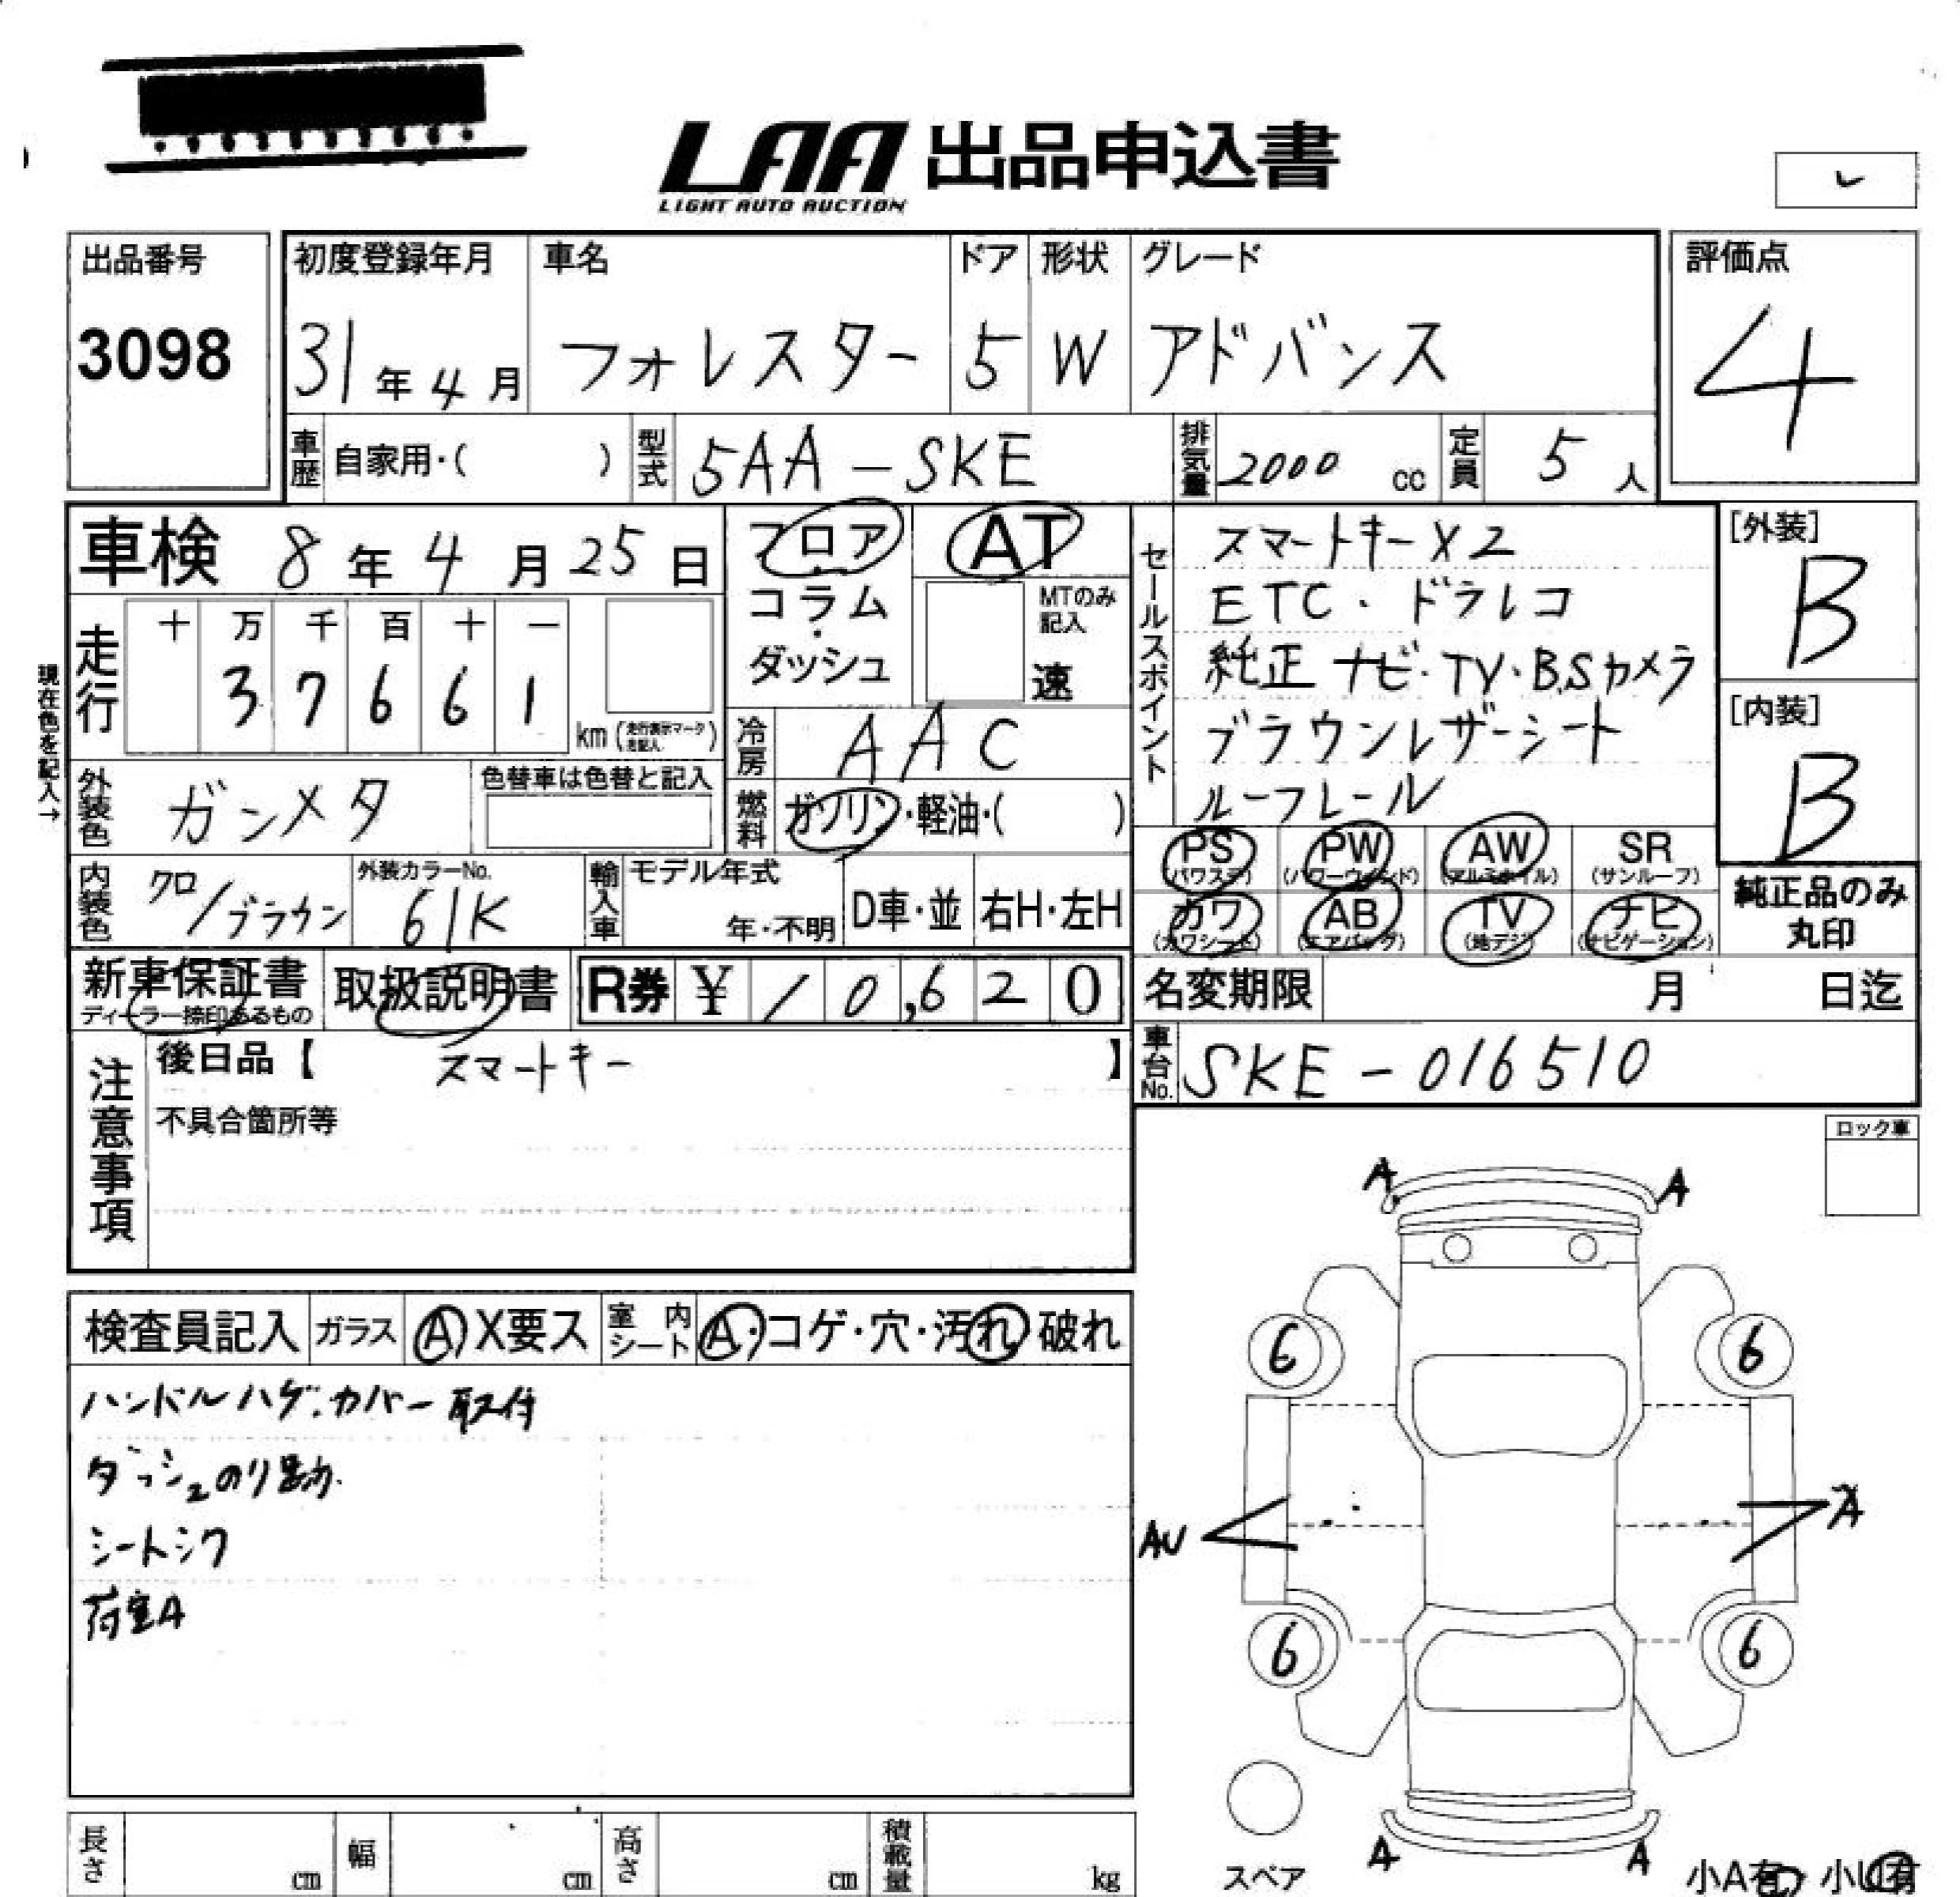 LAA 出品申込書
LIGHT AUTO AUCTION
レ
出品番号
3098
初度登録年月 車名 ドア 形状 グレード
31年4月 フォレスター 5 W アドバンス
評価点
4
車歴 自家用・( ) 型式 5AA-SKE 排気量 2000 cc 定員 5人
車検 8年4月25日
フロア
コラム・
ダッシュ
AT
MTのみ記入
速
現在色を記入→
走行 十 万 千 百 十 一
3 7 6 6 1 km (走行表示マーク 記入)
冷房 AAC
外装色 ガンメタ 色替車は色替と記入
燃料 ガソリン・軽油・( )
内装色 クロ/ブラウン 外装カラーNo. 61K 輸入車 モデル年式 年・不明 D車・並 右H・左H
セールスポイント
スマートキーX2
ETC・ドラレコ
純正ナビ・TV・B,Sカメラ
ブラウンレザーシート
ルーフレール
[外装]
B
[内装]
B
PS (パワステ) PW (パワーウィンド) AW (アルミホイル) SR (サンルーフ)
カワ (カワシート) AB (エアバッグ) TV (地デジ) ナビ (ナビゲーション)
純正品のみ
丸印
新車保証書 ディーラー捺印あるもの 取扱説明書 R券 ¥ 10,620
名変期限 月 日迄
車台No. SKE-016510
注意事項
後日品【 スマートキー 】
不具合箇所等
ロック車
検査員記入 ガラス A X要ス 室内シート A・コゲ・穴・汚れ 破れ
ハンドルハゲ.カバー取付
ダッシュのり跡.
シートシワ
荷室A
A A
6 6
AU A
6 6
A A
スペア
小A有 小U有
長さ cm 幅 cm 高さ cm 積載量 kg